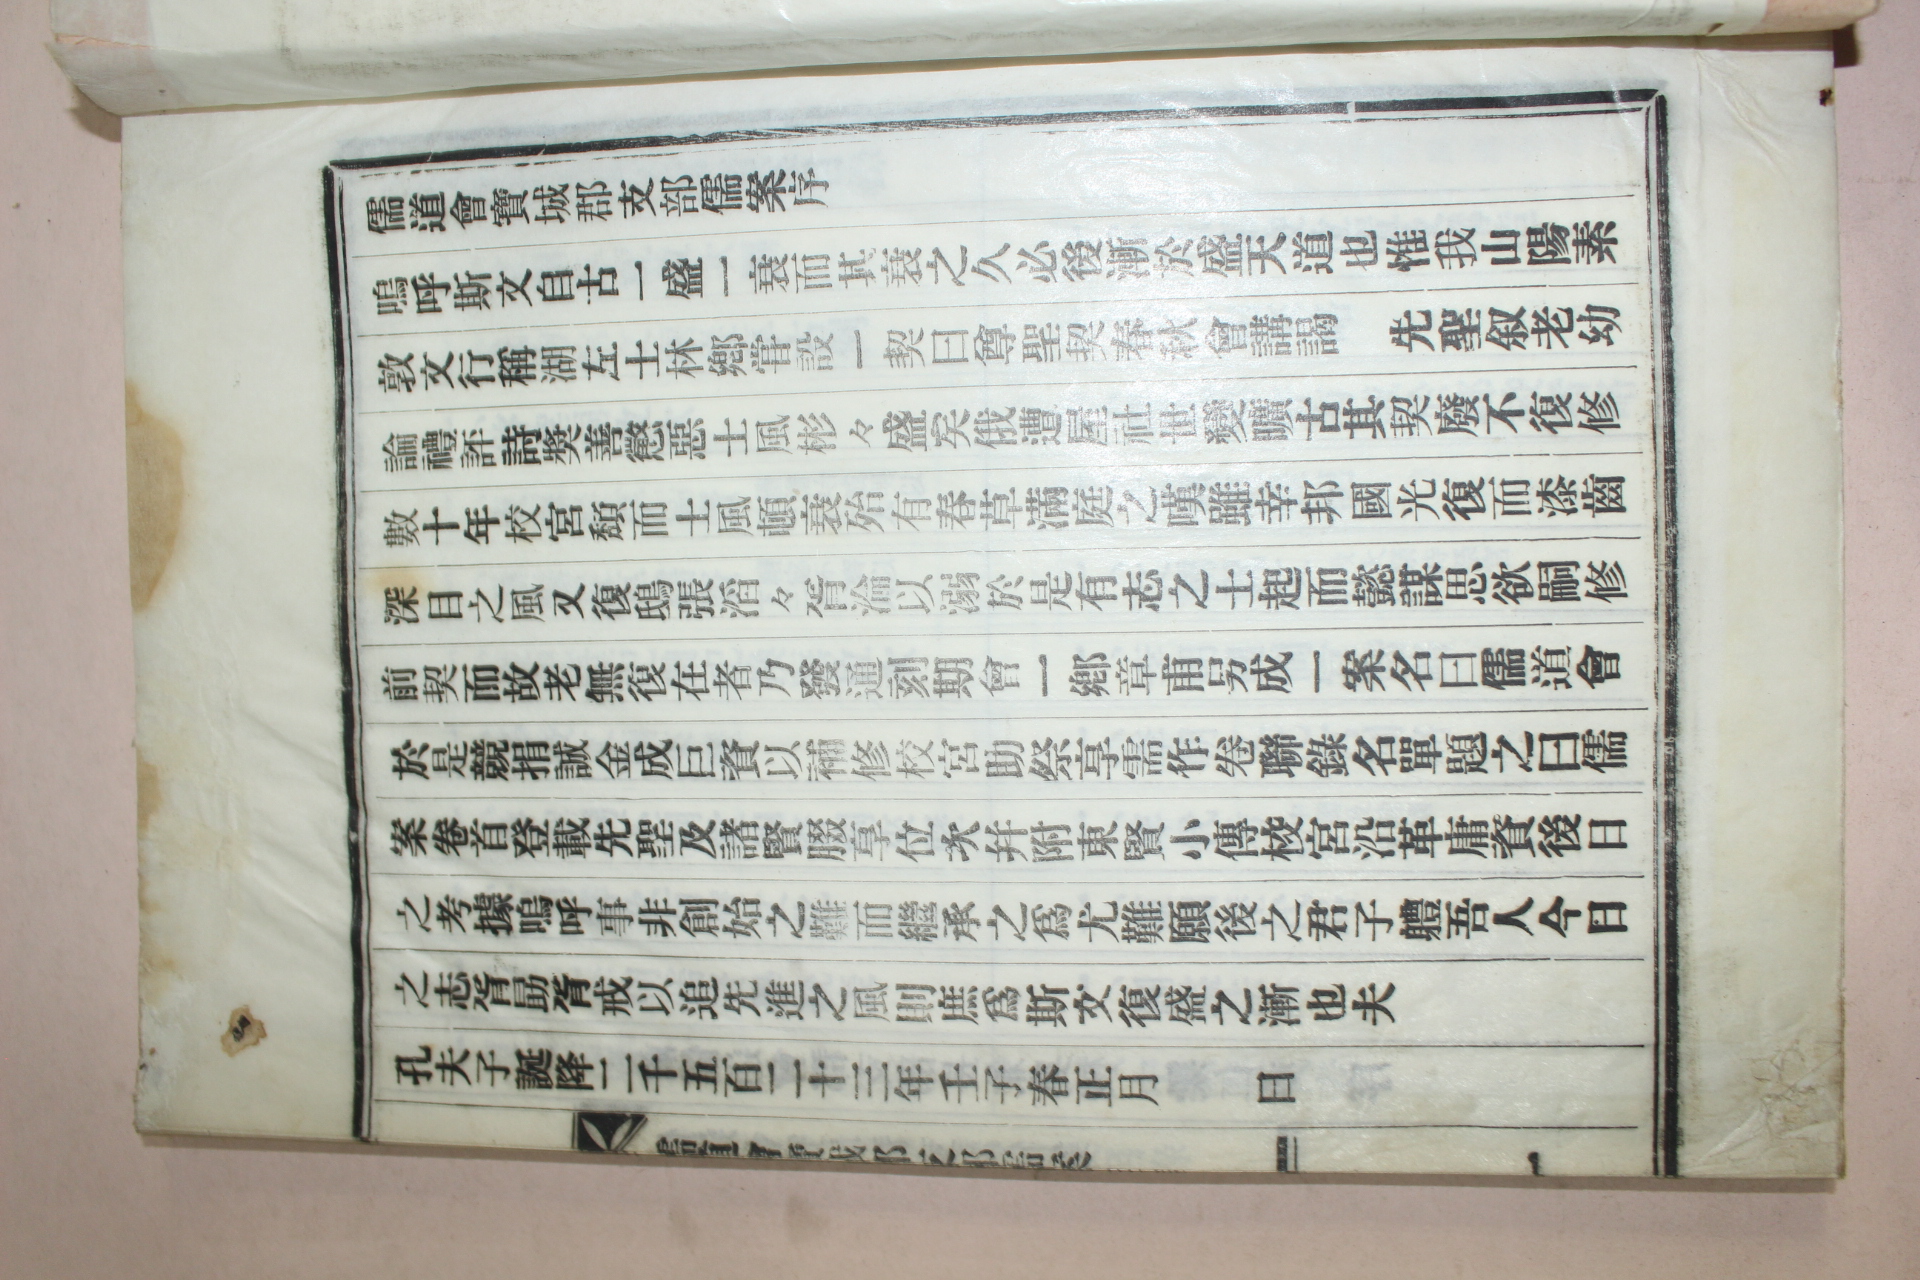 儒道會寶城郡支部儒案序
嗚呼斯文自古一盛一衰而其衰之久必後漸於盛天道也惟我山陽素
敦文行稱湖左士林鄉嘗設一契曰尊聖契春秋會講謁 先聖叙老幼
論禮評詩奬善懲惡士風彬々盛矣俄遭屋社世變曠古其契廢不復修
數十年校宮頹而士風頓衰殆有春草滿庭之嘆雖幸邦國光復而漆齒
深目之風又復鴟張滔々胥淪以溺於是有志之士起而懿謀思欲嗣修
前契而故老無復在者乃發通刻期會一鄉章甫另成一案名曰儒道會
於是競捐誠金成巨資以補修校宮助祭享需作卷聯錄名單題之曰儒
案卷首登載先聖及諸賢腏享位次幷附東賢小傳校宮沿革庸資後日
之考據嗚呼事非創始之難而繼承之爲尤難願後之君子軆吾人今日
之志胥勗胥戒以追先進之風則庶爲斯文復盛之漸也夫
孔夫子誕降二千五百二十三年壬子春正月 日
儒道會寶城郡支部儒案
一